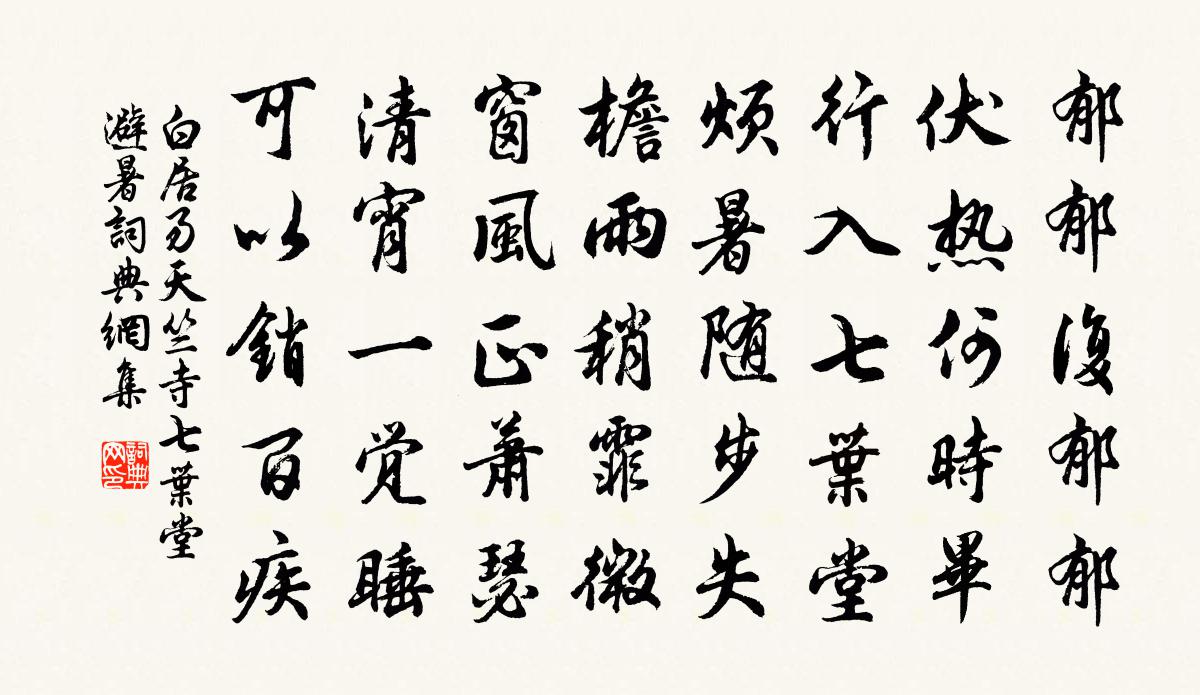 郁郁復郁郁
伏热何時畢
行入七葉堂
烦暑随步失
檐雨稍霏微
窗風正蕭瑟
清宵一觉睡
可以銷百疾
白居易天竺寺七葉堂
避暑詞典網集
詞典网印